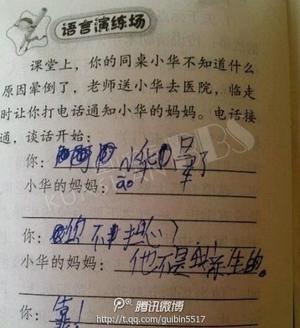 语言演练场
课堂上，你的同桌小华不知道什么
原因晕倒了，老师送小华去医院，临走
时让你打电话通知小华的妈妈。电话接
通，谈话开始：
你：阿姨，小华晕了
小华的妈妈：哦
你：你不担心？
小华的妈妈：他不是我亲生的。
你：靠！
腾讯微博
http://t.qq.com/guibin5517